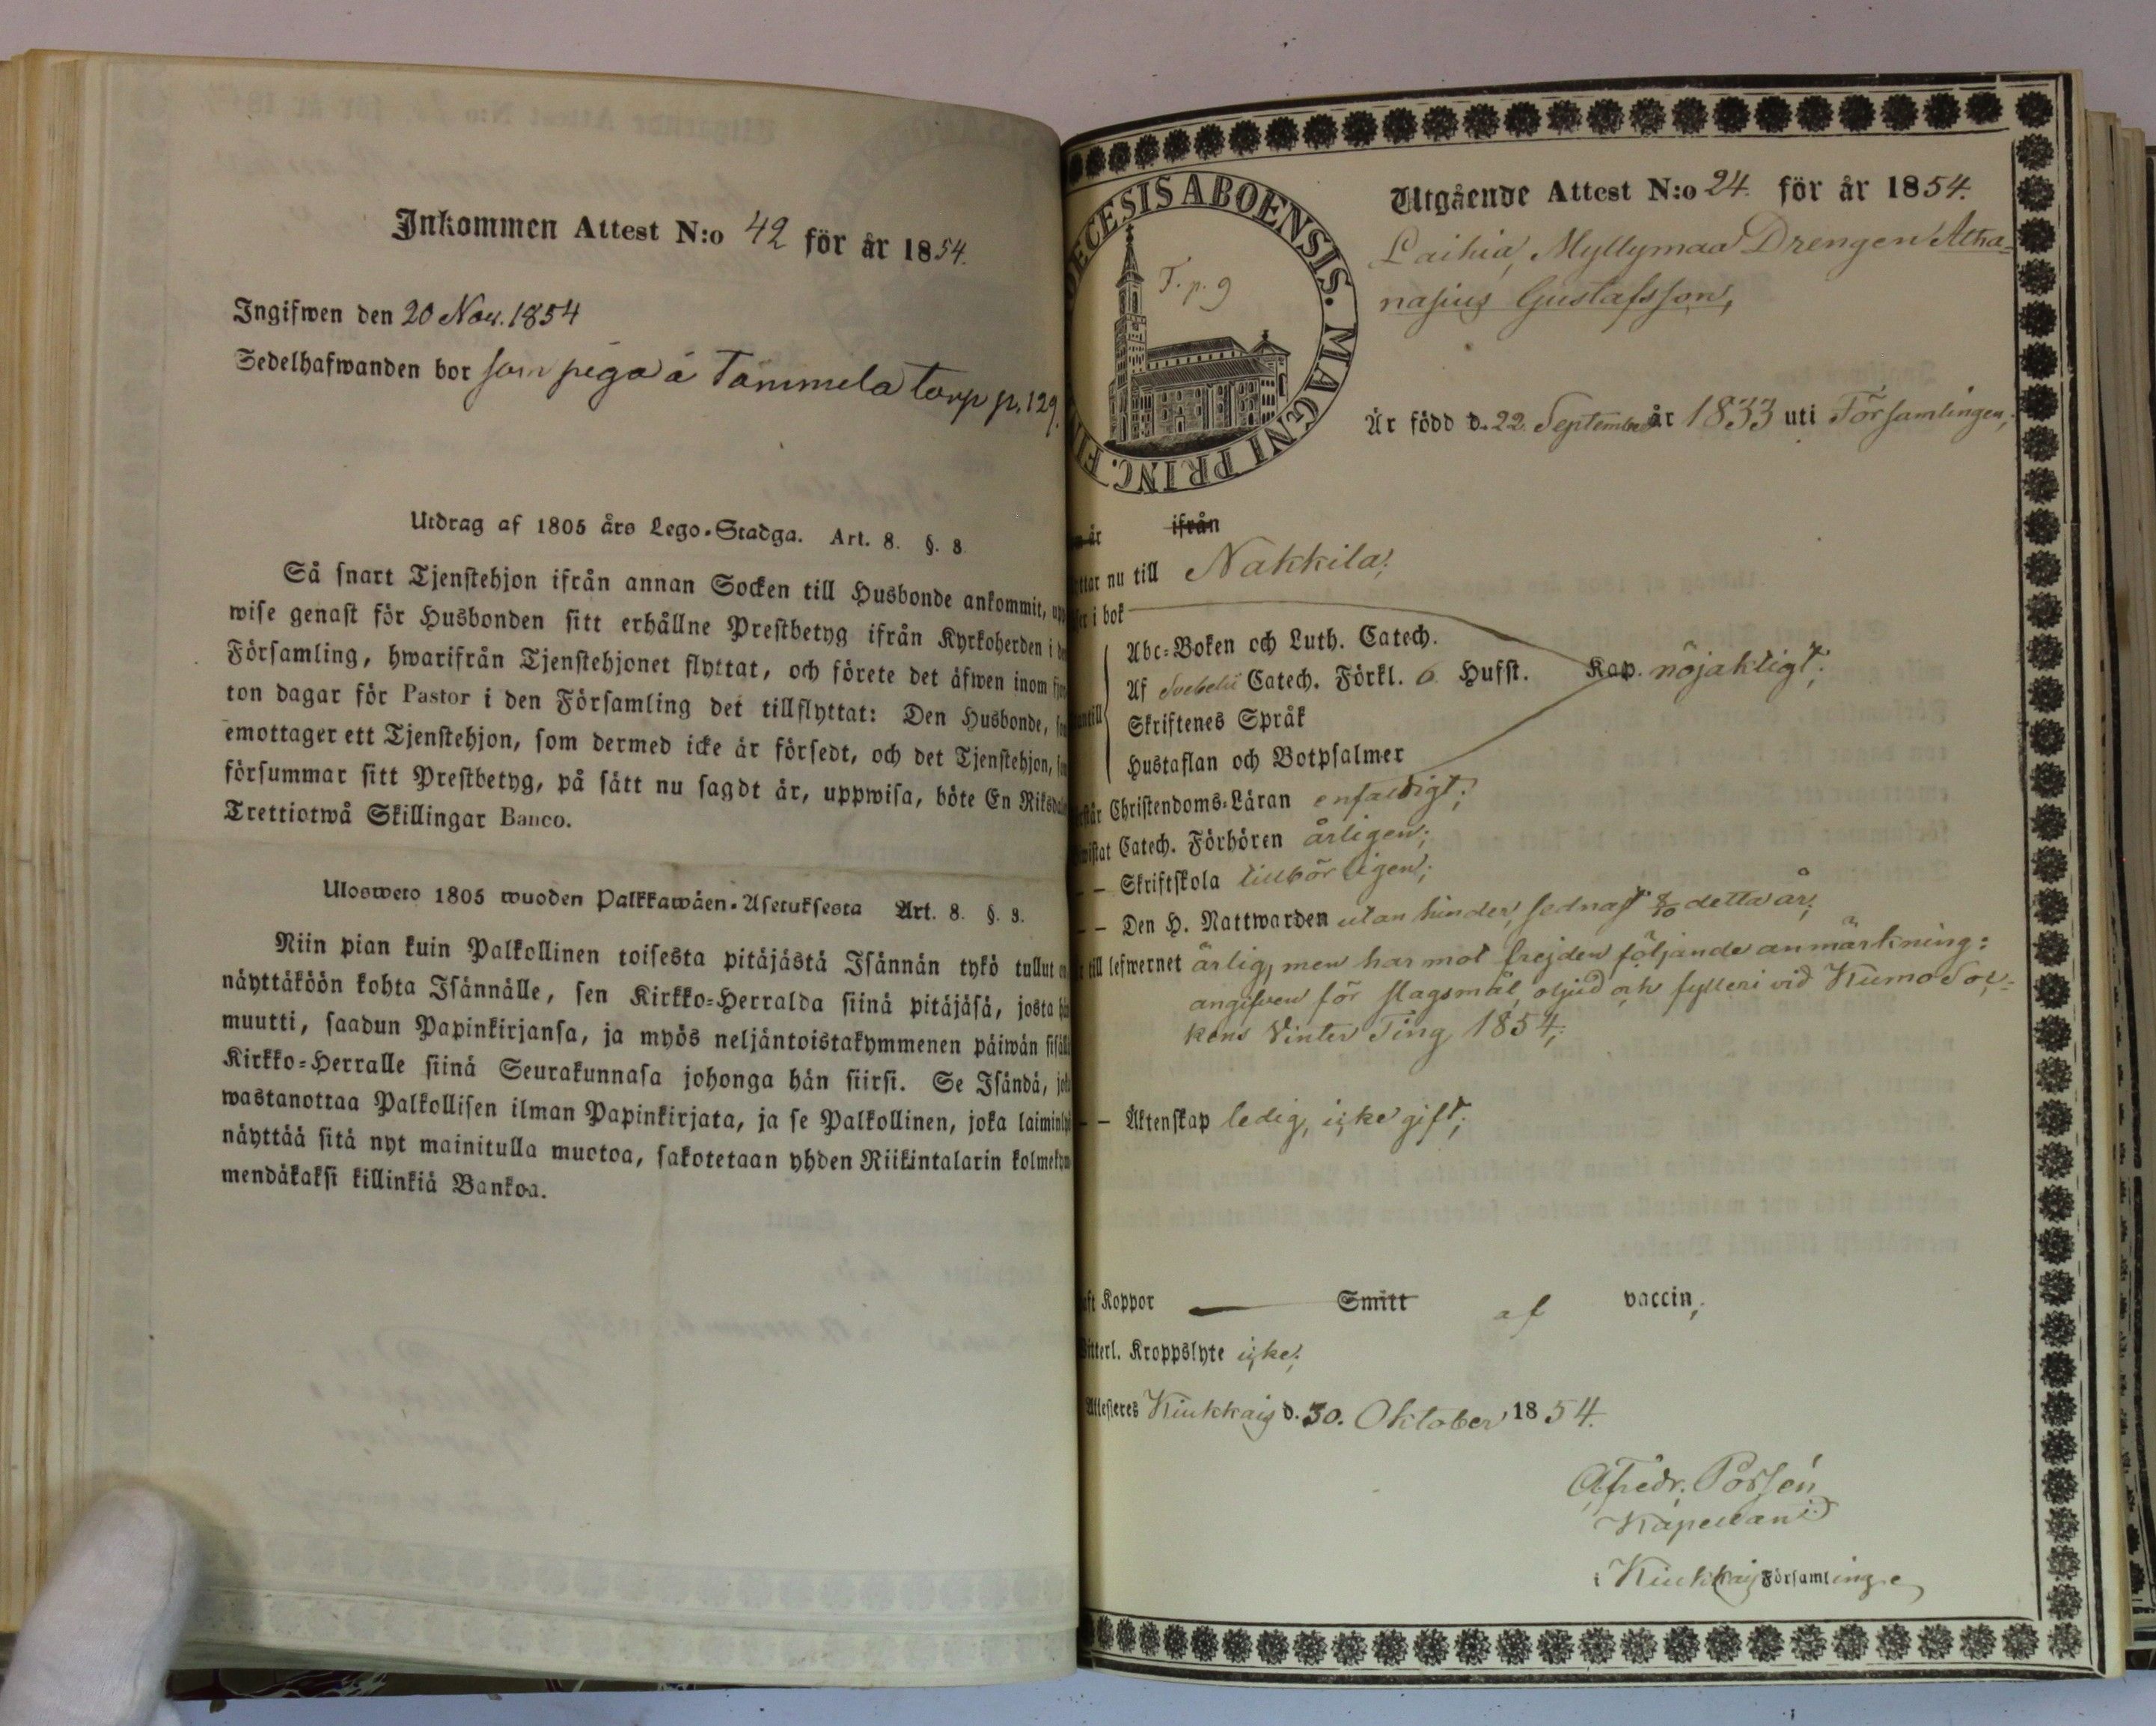 Inkommen Attest N:o 42 för år 1854.
Ingifwen den 20 Nov. 1854
Sedelhafwanden bor som piga å Tammela torp p. 129.
Utdrag af 1805 års Lego-Stadga. Art. 8. §. 8.
Så snart Tjenstehjon ifrån annan Socken till Husbonde ankommit, upp
wise genast för Husbonden sitt erhållne Prestbetyg ifrån Kyrkoherden i den
Församling, hwarifrån Tjenstehjonet flyttat, och förete det äfwen inom fjor
ton dagar för Pastor i den Församling det tillflyttat: Den Husbonde, som
emottager ett Tjenstehjon, som dermed icke är försedt, och det Tjenstehjon, som
försummar sitt Prestbetyg, på sätt nu sagdt är, uppwisa, böte En Riksdaler
Trettiotwå Skillingar Banco.
Ulosweto 1805 wuoden Palkkawäen-Asetuksesta Art. 8. §. 8.
Niin pian kuin Palkollinen toisesta pitäjästä Isännän tykö tullut on
näyttäköön kohta Isännälle, sen Kirkko-Herralda siinä pitäjäsä, josta hän
muutti, saadun Papinkirjansa, ja myös neljäntoistakymmenen päiwän sisällä
Kirkko-Herralle siinä Seurakunnasa johonga hän siirsi. Se Isändä, joka
wastanottaa Palkollisen ilman Papinkirjata, ja se Palkollinen, joka laiminlyö
näyttää sitä nyt mainitulla muotoa, sakotetaan yhden Riikintalarin kolmekym
mendäkaksi killinkiä Bankoa.
DECESIS ABOENSIS. MAGNI PRINC. FI
T. p. 9
Utgående Attest N:o 24. för år 1854.
Laihia, Myllymaa Drengen Atha-
nasius Gustafsson,
Är född d. 22. September år 1833 uti Församlingen;
är ifrån
ttar nu till Nakkila;
er i bok
Abc-Boken och Luth. Catech.
Af Svebelii Catech. Förkl. 6 Hufst. Kap. nöjaktigt;
antill Skriftenes Språk
Hustaflan och Botpsalmer
står Christendoms-Läran enfaldigt;
wistat Catech. Förhören årligen;
– – Skriftskola tillbörligen;
– – Den H. Nattwarden utan hinder, sednast 8/10 detta år;
r till lefwernet ärlig, men har mot frejden följande anmärkning:
angifven för slagsmål, oljud och fylleri vid Kumo Soc-
kens Vinter Ting 1854;
– – Äktenskap ledig, icke gift;
aft Koppor — Smitt af vaccin;
Witterl. Kroppslyte icke;
Attesteres Kiukkais d. 30. Oktober 1854.
A. Fredr. Porsén
Kapellan
i Kiukkais Församlinge